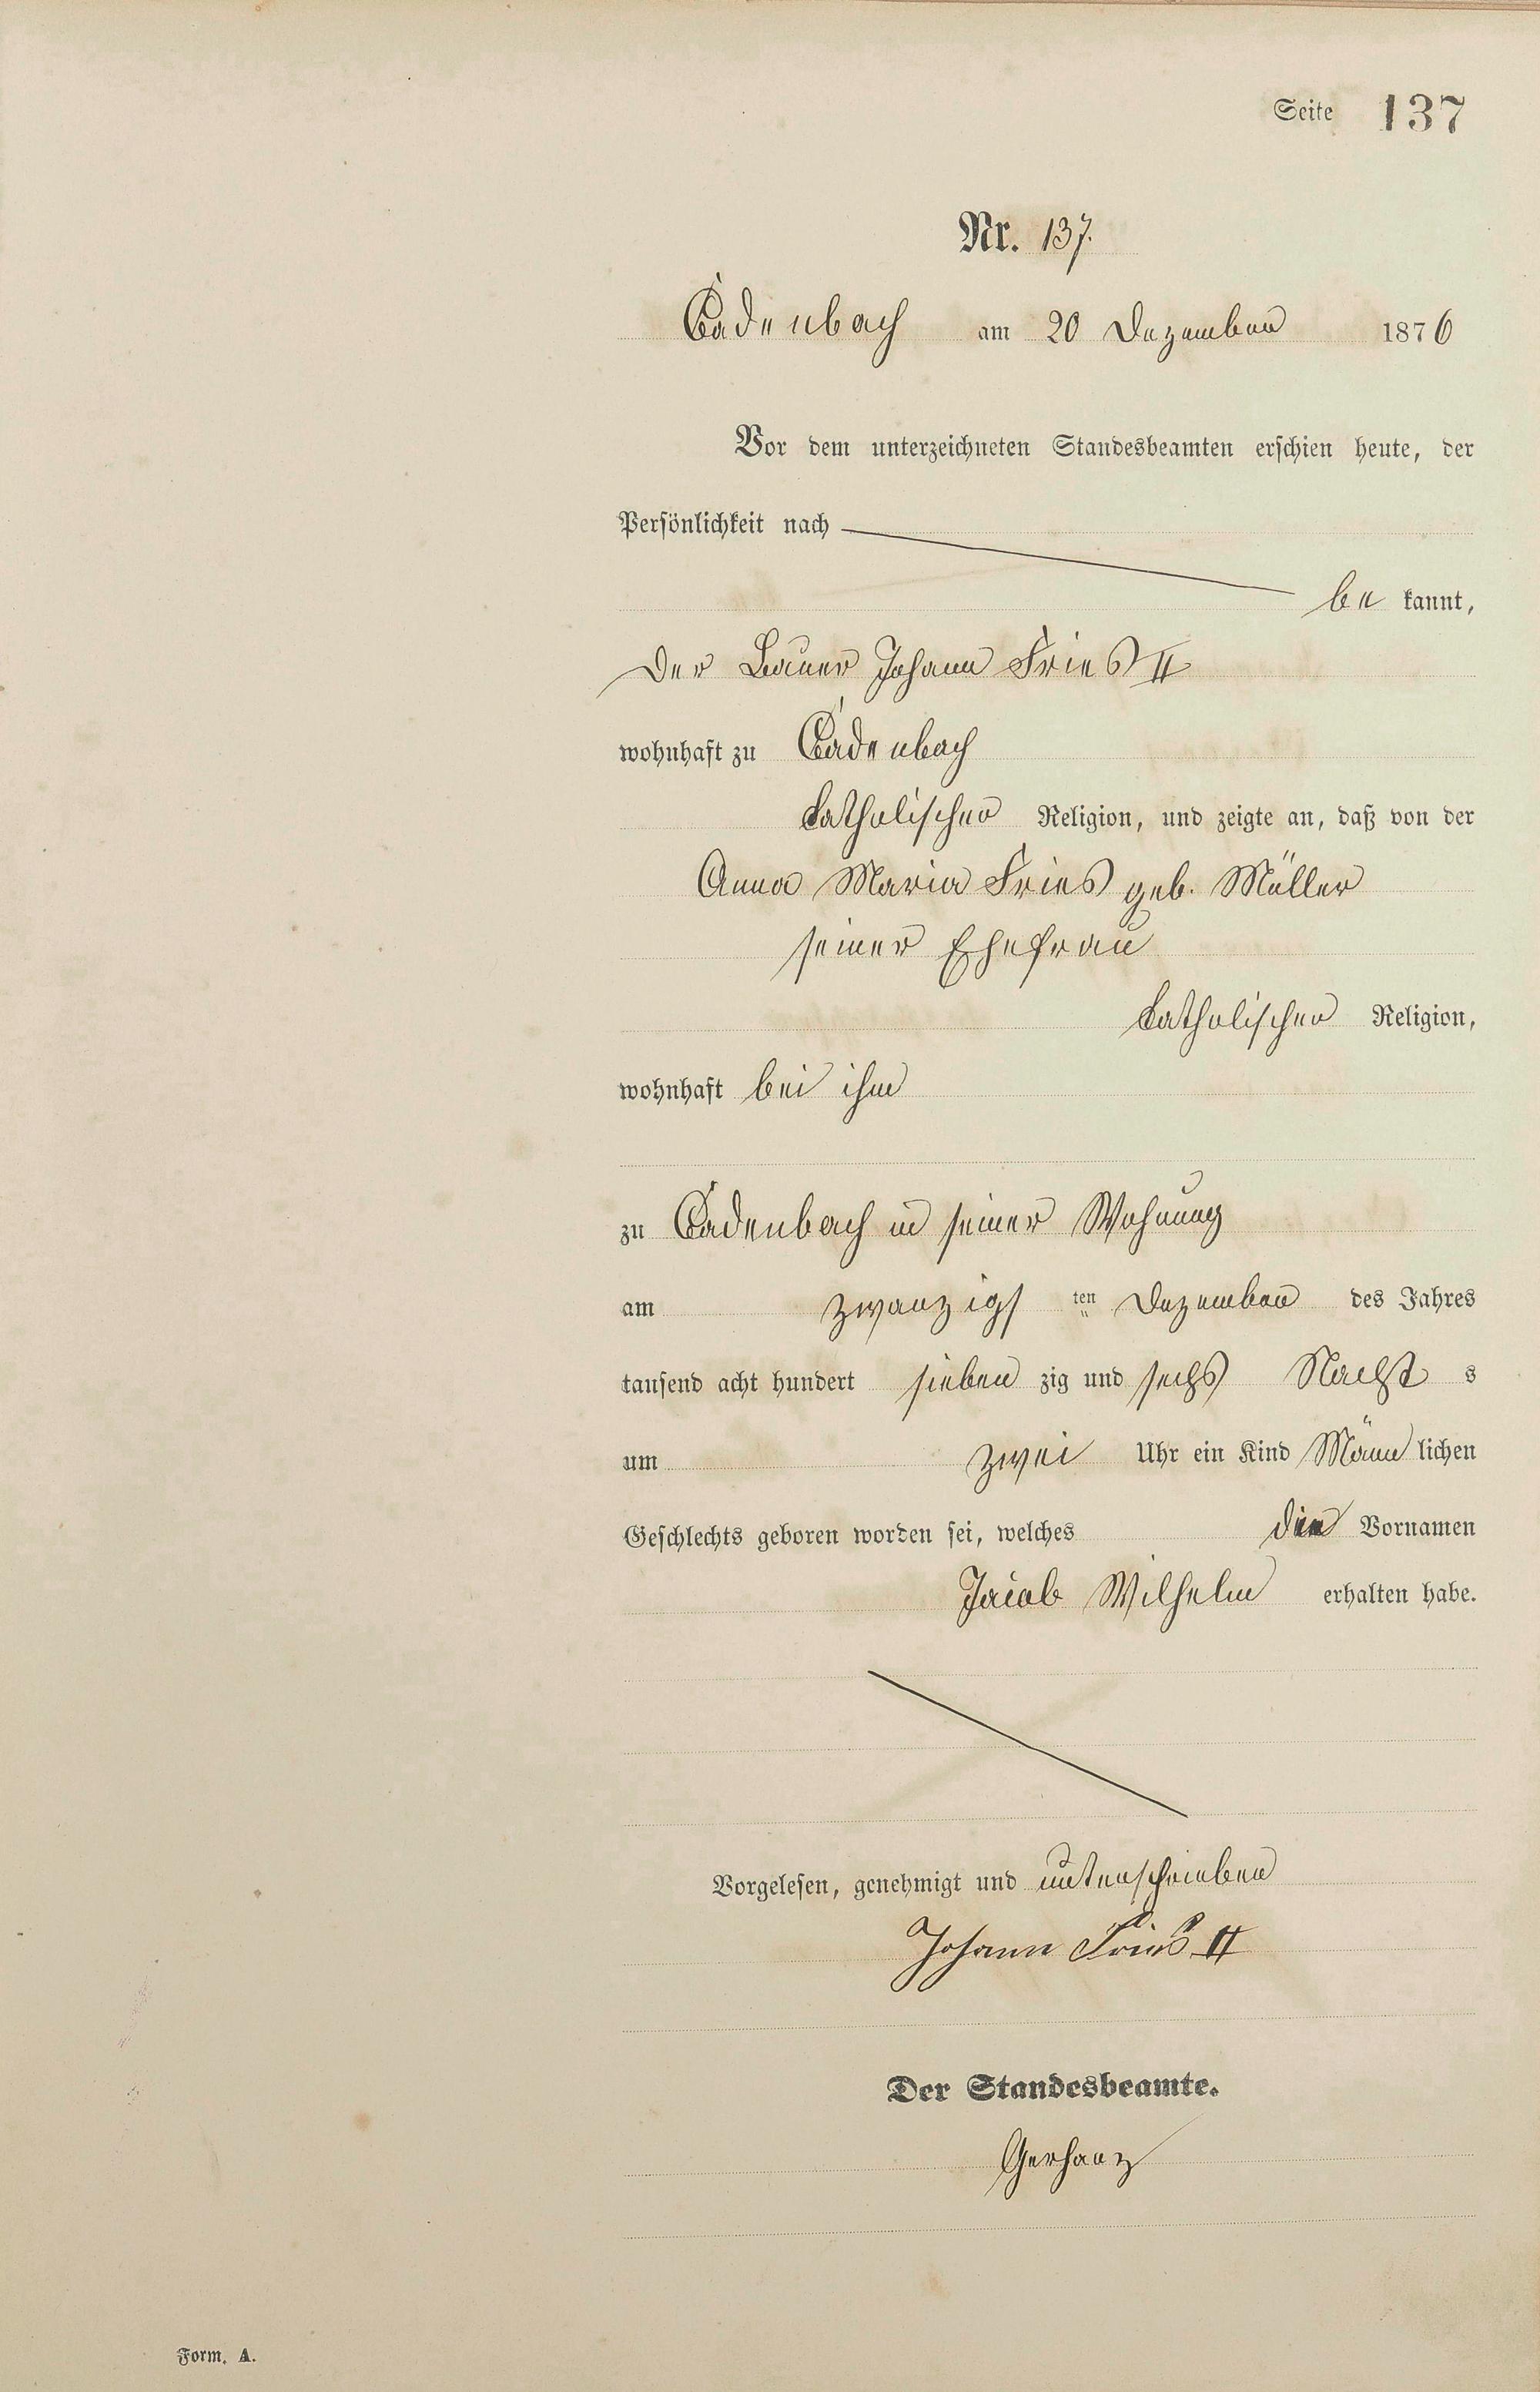 Seite 137
Nr. 137.
Cadenbach am 20 Dezember 1876
Vor dem unterzeichneten Standesbeamten erschien heute, der
Persönlichkeit nach
be kannt,
Der Bauer Johann Fries II
wohnhaft zu Cadenbach
katholischer Religion, und zeigte an, daß von der
Anna Maria Fries geb. Müller
seiner Ehefrau
katholischer Religion,
wohnhaft bei ihm
zu Cadenbach in seiner Wohnung
am zwanzigs ten Dezember des Jahres
tausend acht hundert sieben zig und sechs Nacht s
um zwei Uhr ein Kind Männ lichen
Geschlechts geboren worden sei, welches die Vornamen
Jacob Wilhelm erhalten habe.
Vorgelesen, genehmigt und unterschrieben
Johann Fries II
Der Standesbeamte.
Gerhanz
Form. A.